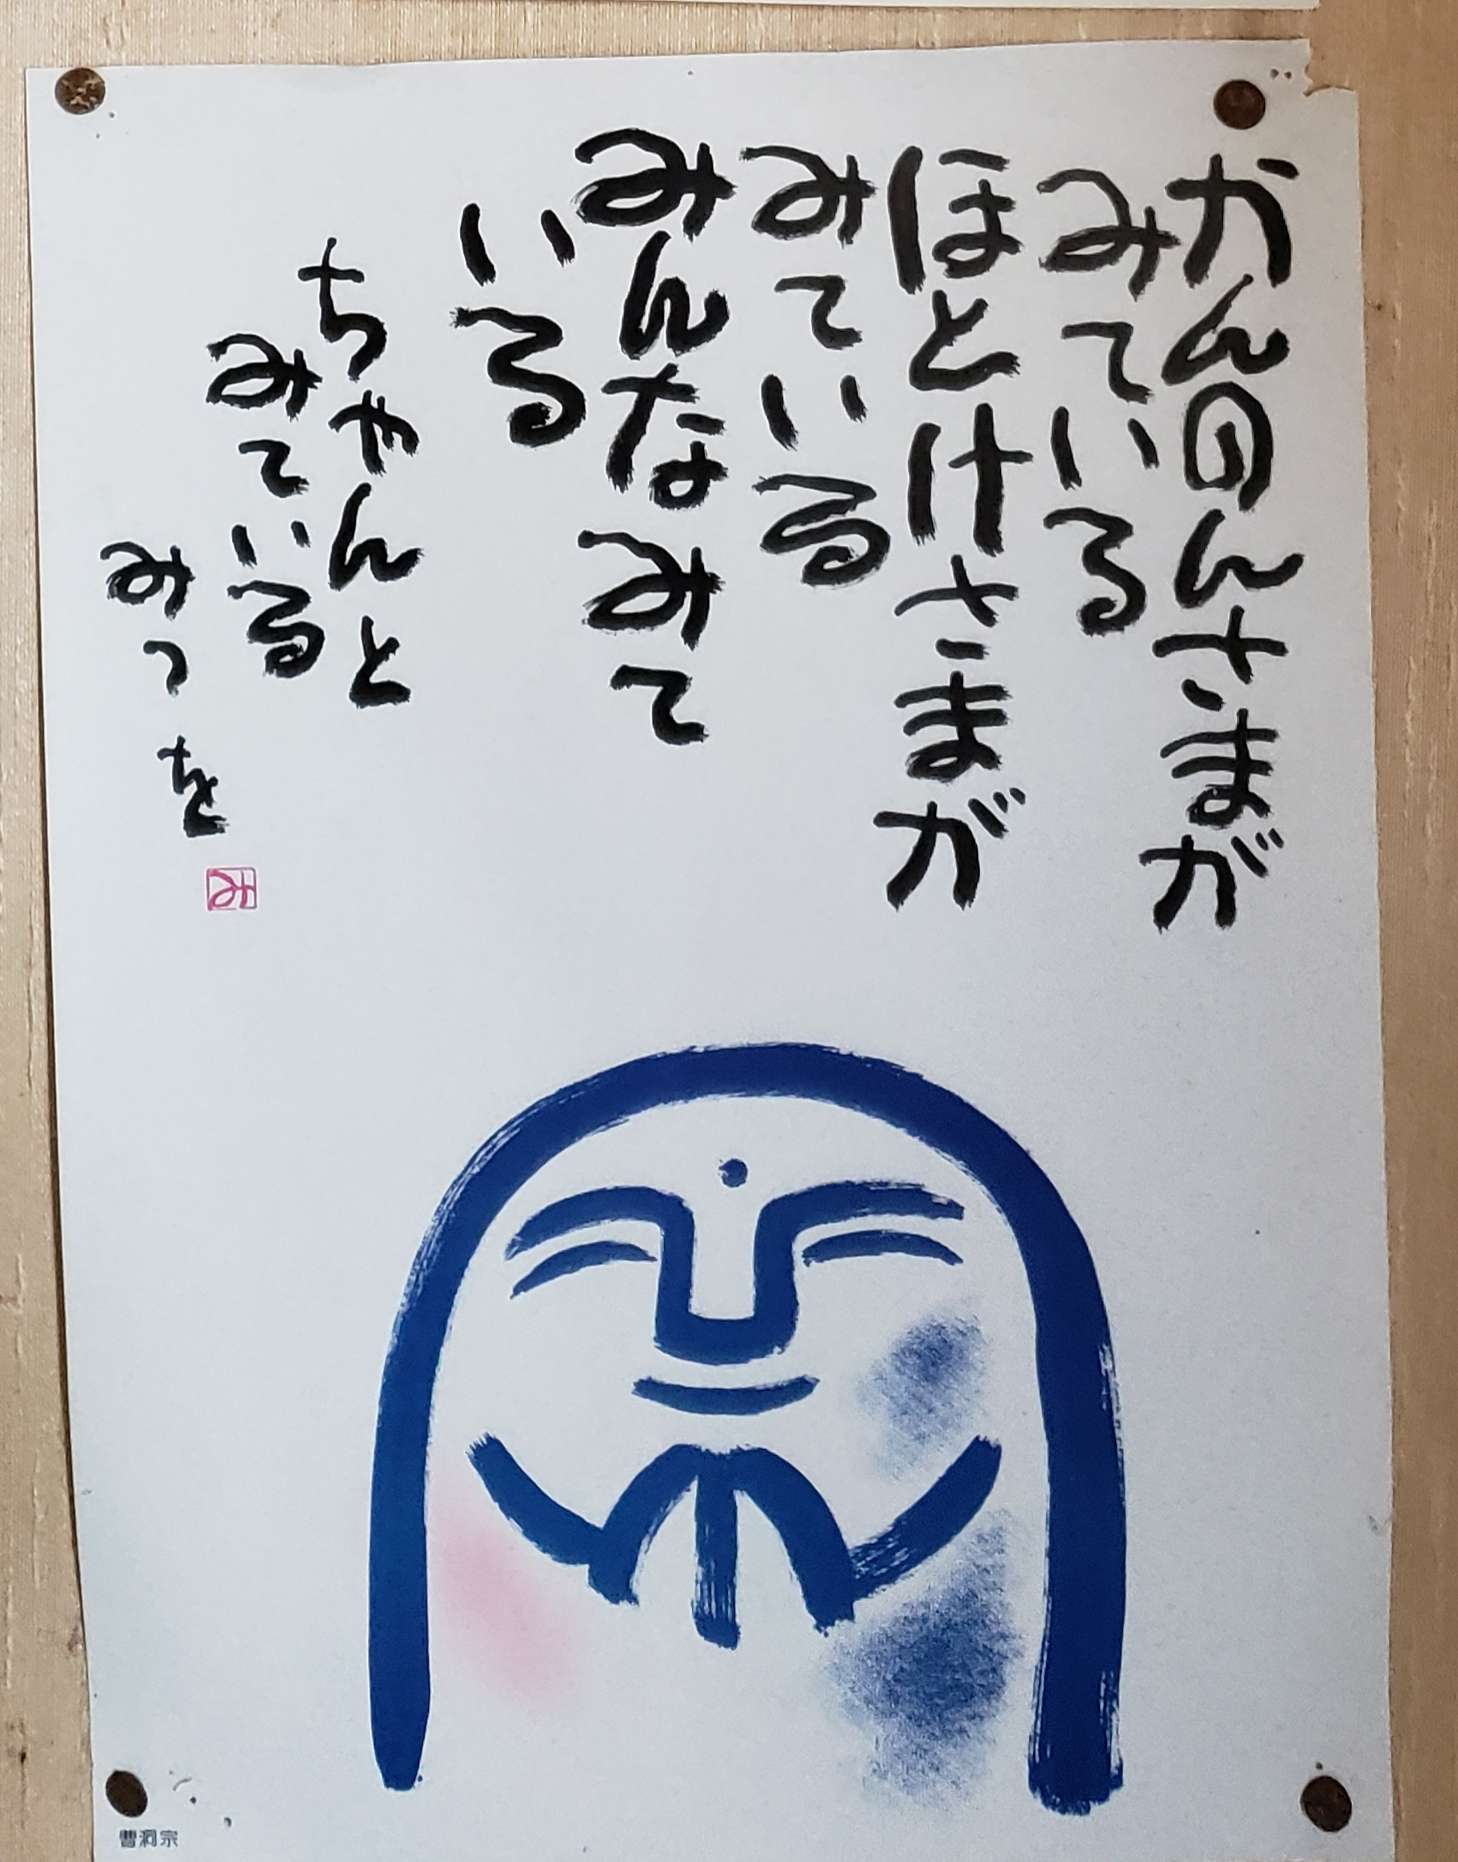 かんのんさまが
みている
ほとけさまが
みている
みんなみて
いる
ちゃんと
みている
みつを
み
曹洞宗